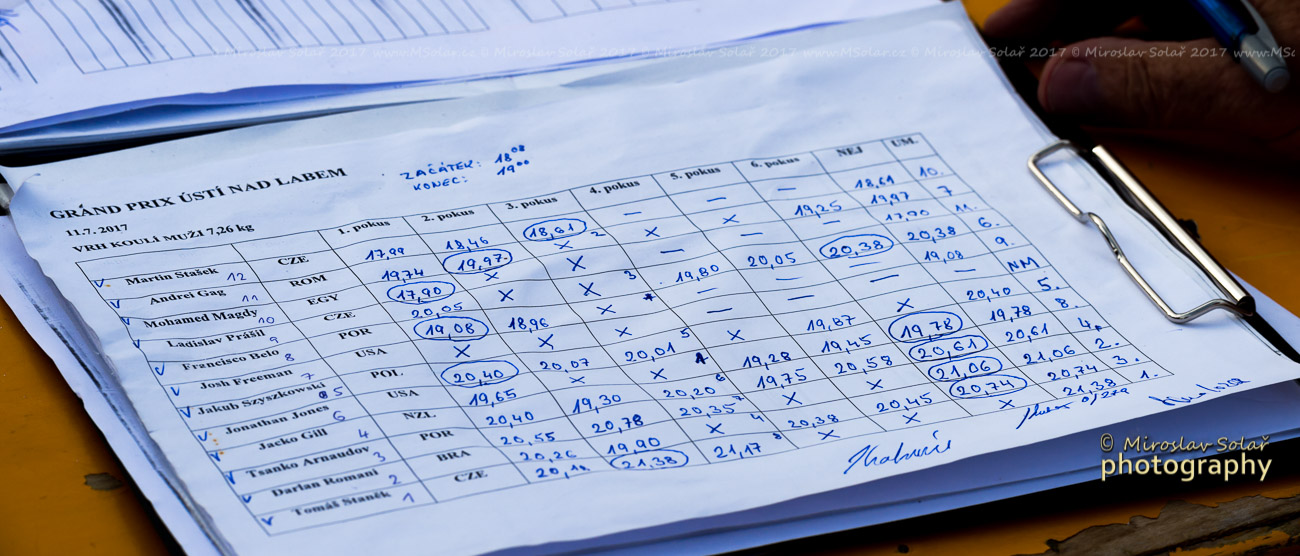 www.MSolar.cz © Miroslav Solař 2017 © Miroslav Solař 2017 www.MSolar.cz © Miroslav Solař 2017 © Miroslav Solař 2017 www.MSo
GRAND PRIX ÚSTÍ NAD LABEM
ZAČÁTEK: 18⁰⁸
KONEC: 19⁰⁰
11.7.2017
VRH KOULÍ MUŽI 7,26 kg
1. pokus 2. pokus 3. pokus 4. pokus 5. pokus 6. pokus NEJ UM.
Martin Stašek 12 CZE 17,99 18,46 18,61 – – – 18,61 10.
Andrei Gag 11 ROM 19,74 19,97 x x x 19,25 19,97 7
Mohamed Magdy 10 EGY 17,90 x x – – – 17,90 11.
Ladislav Prášil 9 CZE 20,05 x x 19,80 20,05 20,38 20,38 6.
Francisco Belo 8 POR 19,08 18,96 x – – – 19,08 9.
Josh Freeman 7 USA x x x – – – NM
Jakub Szyszkowski 5 POL 20,40 20,07 20,01 x 19,87 x 20,40 5.
Jonathan Jones 6 USA 19,65 x x 19,28 19,45 19,78 19,78 8.
Jacko Gill 4 NZL 20,40 19,30 20,20 19,75 20,58 20,61 20,61 4.
Tsanko Arnaudov 3 POR 20,55 20,78 20,35 x x 21,06 21,06 2.
Darlan Romani 2 BRA 20,26 19,90 x 20,38 20,45 20,74 20,74 3.
Tomáš Staněk 1 CZE 21,38 21,17 x x x 21,38 1.
© Miroslav Solař
photography